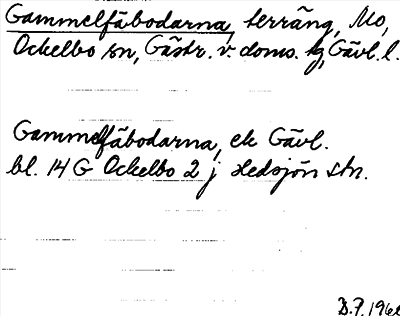 Gammelfäbodarna, terräng, Mo,
Ockelbo sn, Gästr. v. doms. tg, Gävl. l.
Gammelfäbodarna, ek Gävl.
bl. 14 G Ockelbo 2 j Hedsjön stn.
D.P. 196